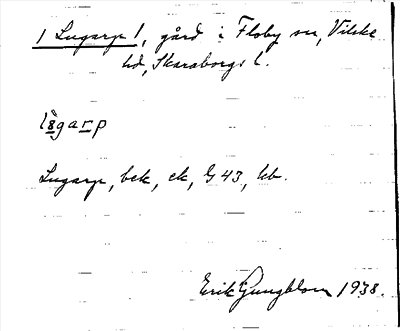 1 Lugarp 1, gård i Floby sn, Vilske
hd, Skaraborgs l.
Lugarp, bek, ek, G 43, kb.
Erik Ljungblom 1938.